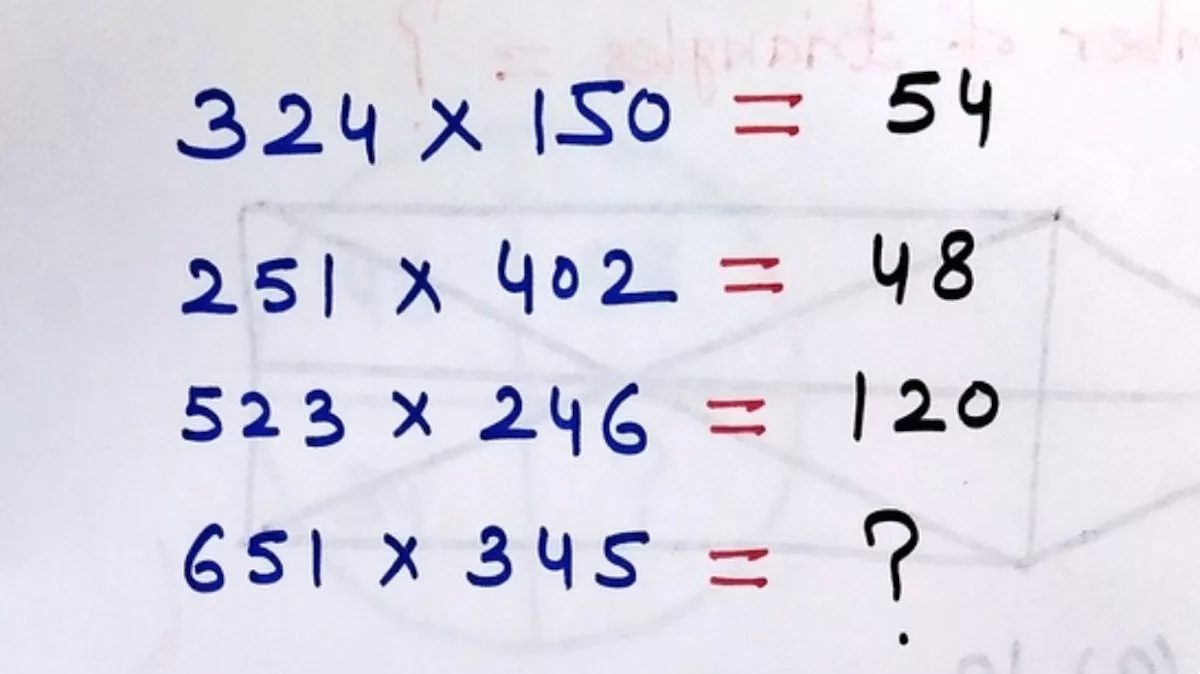 324 × 150 = 54
251 × 402 = 48
523 × 246 = 120
651 × 345 = ?